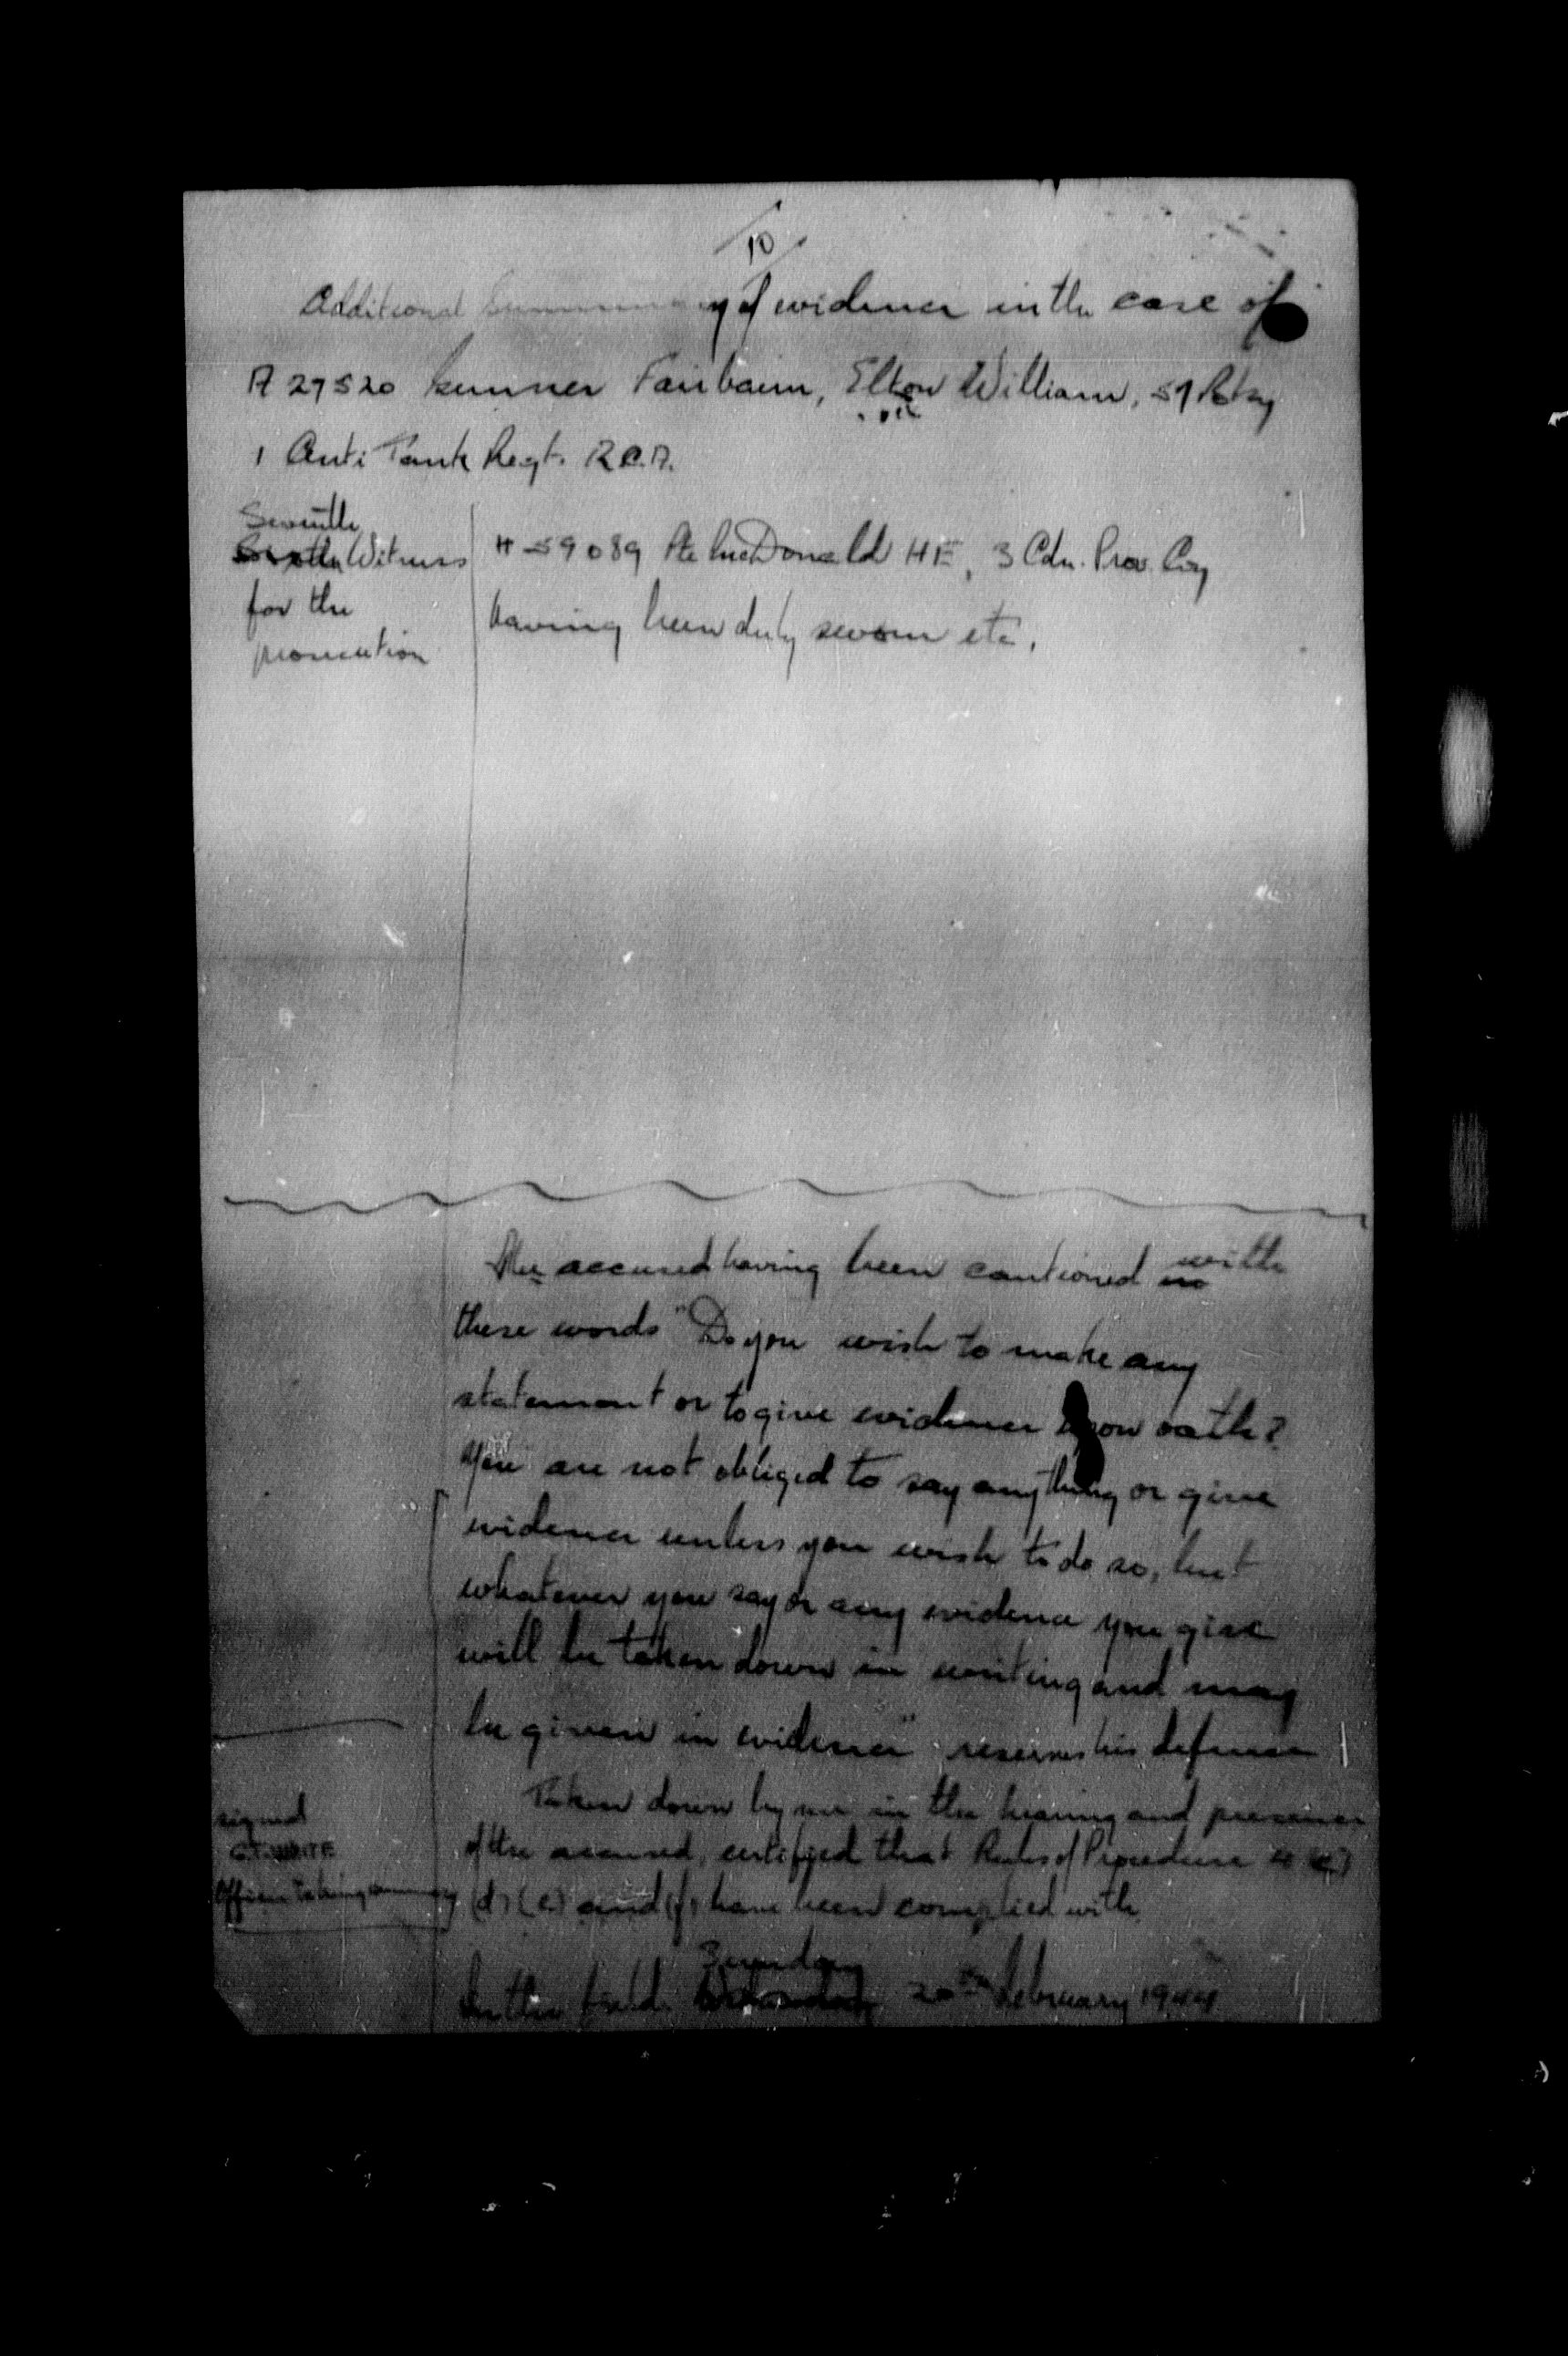 10
Additional Summary of evidence in the case of
A 27520 Gunner Fairbairn, Elton William, 57 Btry
1 Anti Tank Regt. R.C.A.
Seventh
Sixth Witness
for the
prosecution
H 59089 Pte McDonald HE, 3 Cdn. Prov. Coy
having been duly sworn etc.
The accused having been cautioned in with
these words "Do you wish to make any
statement or to give evidence upon oath?
You are not obliged to say anything or give
evidence unless you wish to do so, but
whatever you say or any evidence you give
will be taken down in writing and may
be given in evidence" reserves his defence
Taken down by me in the hearing and presence
of the accused, certified that Rules of Procedure 4 (c)
(d) (e) and (f) have been complied with
signed
Officer taking summary
Sunday
In the field. 20th February 1944